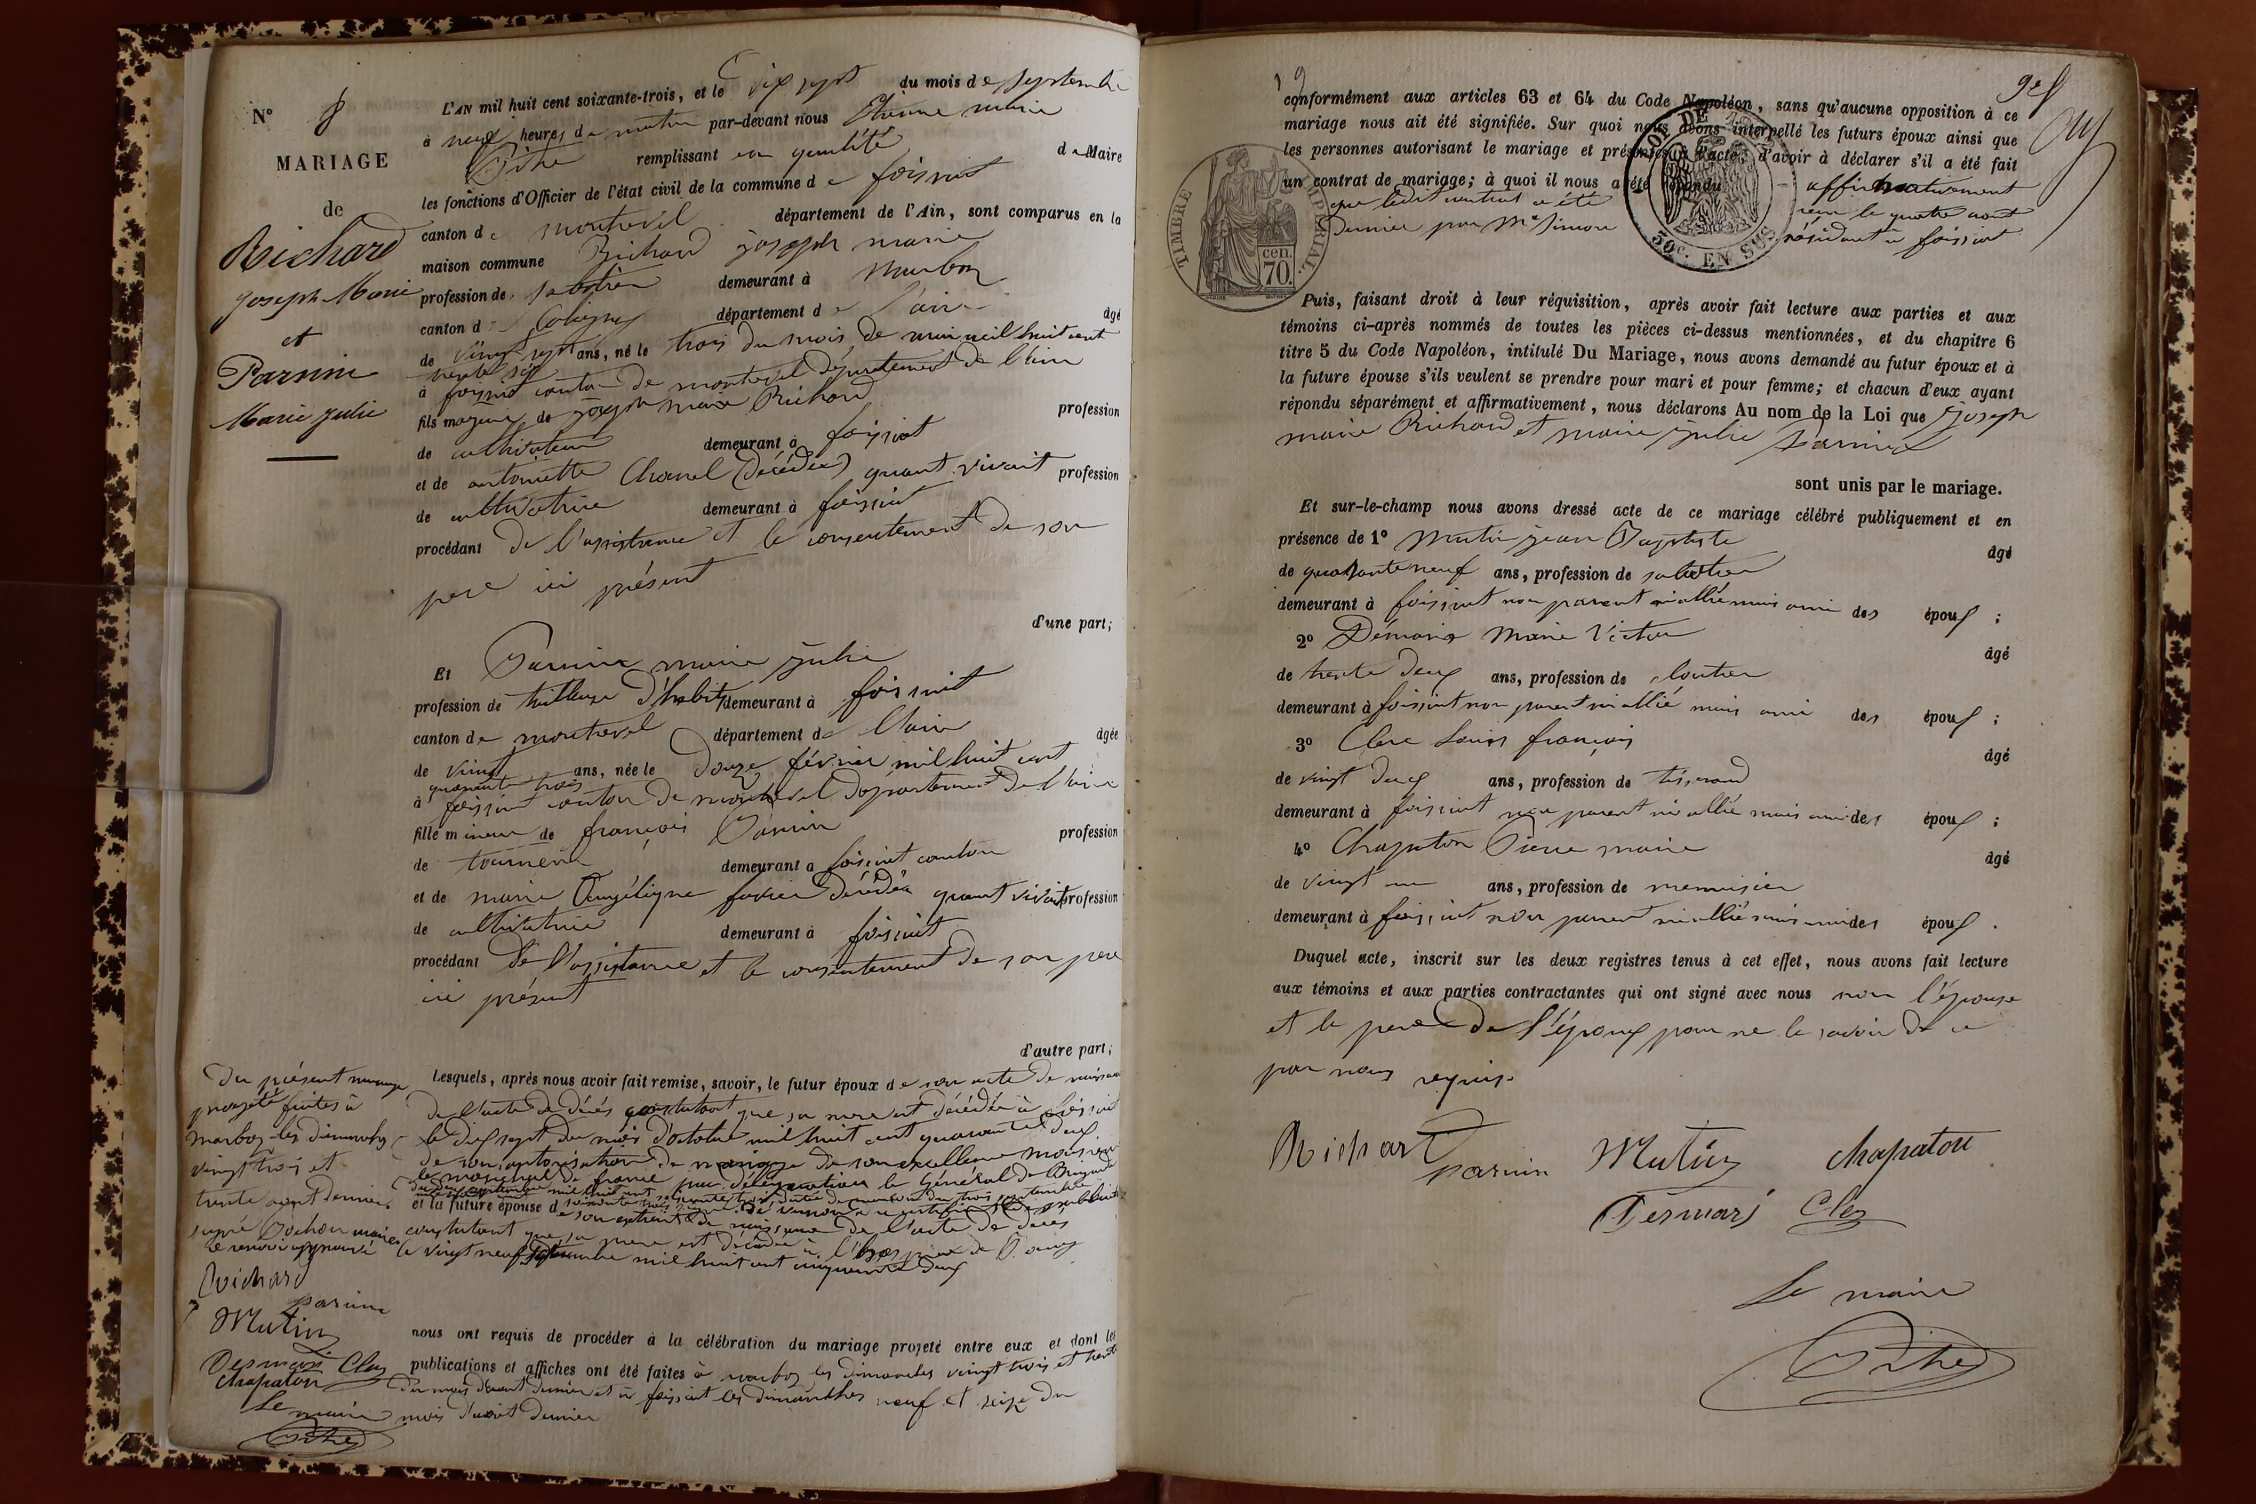 N° 8
MARIAGE
de
Richard
Joseph Marie
et
Parnin
Marie Julie
L'AN mil huit cent soixante-trois, et le Dix sept du mois de septembre
à neuf heures du matin par-devant nous Etienne marie
remplissant en qualité de Maire
les fonctions d'Officier de l'état civil de la commune de foissiat
canton de montrevel département de l'Ain, sont comparus en la
maison commune Richard joseph marie
profession de sabotier demeurant à Marboz
canton de Coligny département de l'ain âgé
de vingt sept ans, né le trois du mois de mai mil huit cent
trente six
à foissiat canton de montrevel département de l'ain
fils majeur de joseph marie Richard profession
de cultivateur demeurant à foissiat
et de antoinette Chanel (décédée) quant vivait profession
de cultivatrice demeurant à foissiat
procédant de l'assistance et le consentement de son
pere ici présent
d'une part;
Et Parnin marie julie
profession de tailleuse d'habits demeurant à foissiat
canton de montrevel département de l'ain âgée
de vingt ans, née le douze février mil huit cent
quarante trois
à foissiat canton de montrevel département de l'ain
fille mineure de françois Parnin profession
de tourneur demeurant à foissiat canton
et de marie Angélique décédée quant vivait profession
de cultivatrice demeurant à foissiat
procédant de l'assistance et le consentement de son pere
ici présent
d'autre part;
Lesquels, après nous avoir fait remise, savoir, le futur époux de son acte de naissance
de l'acte de décès constatant que sa mere est décédée à foissiat
le dix sept du mois d'octobre mil huit cent quarante deux
de son autorisation de mariage de son excellence monsieur
le maréchal de france par délégation le Général de Brigade
et la future épouse de son extrait de naissance de l'acte de décès
constatant que sa mere est décédée à l'hos
le vingt neuf mil huit cent cinquante deux
nous ont requis de procéder à la célébration du mariage projeté entre eux et dont les
publications et affiches ont été faites à marboz les dimanches vingt trois et trente
du mois d'aout dernier et à foissiat les dimanches neuf et seize du
mois d'août dernier
Du présent mariage
projeté faites à
Marboz les dimanches
vingt trois et
trente aout dernier
signé Bochon maire
le renvoi approuvé
Richard
Parnin
Mutin
Desmaris Clerc
chapaton
Le maire
92
conformément aux articles 63 et 64 du Code Napoléon, sans qu'aucune opposition à ce
mariage nous ait été signifiée. Sur quoi nous avons interpellé les futurs époux ainsi que
les personnes autorisant le mariage et présentes à l'acte, d'avoir à déclarer s'il a été fait
un contrat de mariage; à quoi il nous a été répondu affirmativement
que ledit contrat a été reçu le quatre aout
Dernier par Me Simon résidant à foissiat
TIMBRE IMPERIAL.
cen.
70.
50c. EN SUS
Puis, faisant droit à leur réquisition, après avoir fait lecture aux parties et aux
témoins ci-après nommés de toutes les pièces ci-dessus mentionnées, et du chapitre 6
titre 5 du Code Napoléon, intitulé Du Mariage, nous avons demandé au futur époux et à
la future épouse s'ils veulent se prendre pour mari et pour femme; et chacun d'eux ayant
répondu séparément et affirmativement, nous déclarons Au nom de la Loi que joseph
marie Richard et marie julie Parnin
sont unis par le mariage.
Et sur-le-champ nous avons dressé acte de ce mariage célébré publiquement et en
présence de 1° Mutin jean Baptiste âgé
de quarante neuf ans, profession de sabotier
demeurant à foissiat non parent ni allié mais ami des époux;
2° Démaris Marie Victor âgé
de trente deux ans, profession de cloutier
demeurant à foissiat non parent ni allié mais ami des époux;
3° Clerc Louis françois âgé
de vingt deux ans, profession de tisserand
demeurant à foissiat non parent ni allié mais ami des époux;
4° Chapaton Pierre marie âgé
de vingt un ans, profession de menuisier
demeurant à foissiat non parent ni allié mais ami des époux.
Duquel acte, inscrit sur les deux registres tenus à cet effet, nous avons fait lecture
aux témoins et aux parties contractantes qui ont signé avec nous non l'épouse
et le pere de l'époux pour ne le savoir de ce
par nous requis.
Richard Parnin Mutin chapaton
Desmaris Clerc
Le maire